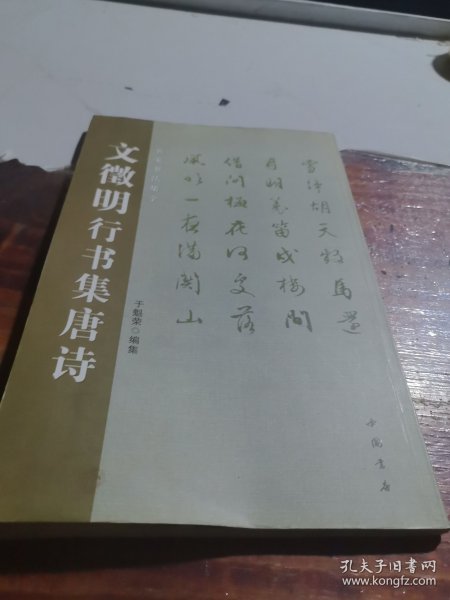 文徵明行书集唐诗
于魁荣◎编集
雪净胡天牧馬還
月明羌笛戍樓間
借問梅花何處落
風吹一夜滿關山
中國書店
孔夫子旧书网
www.kongfz.com